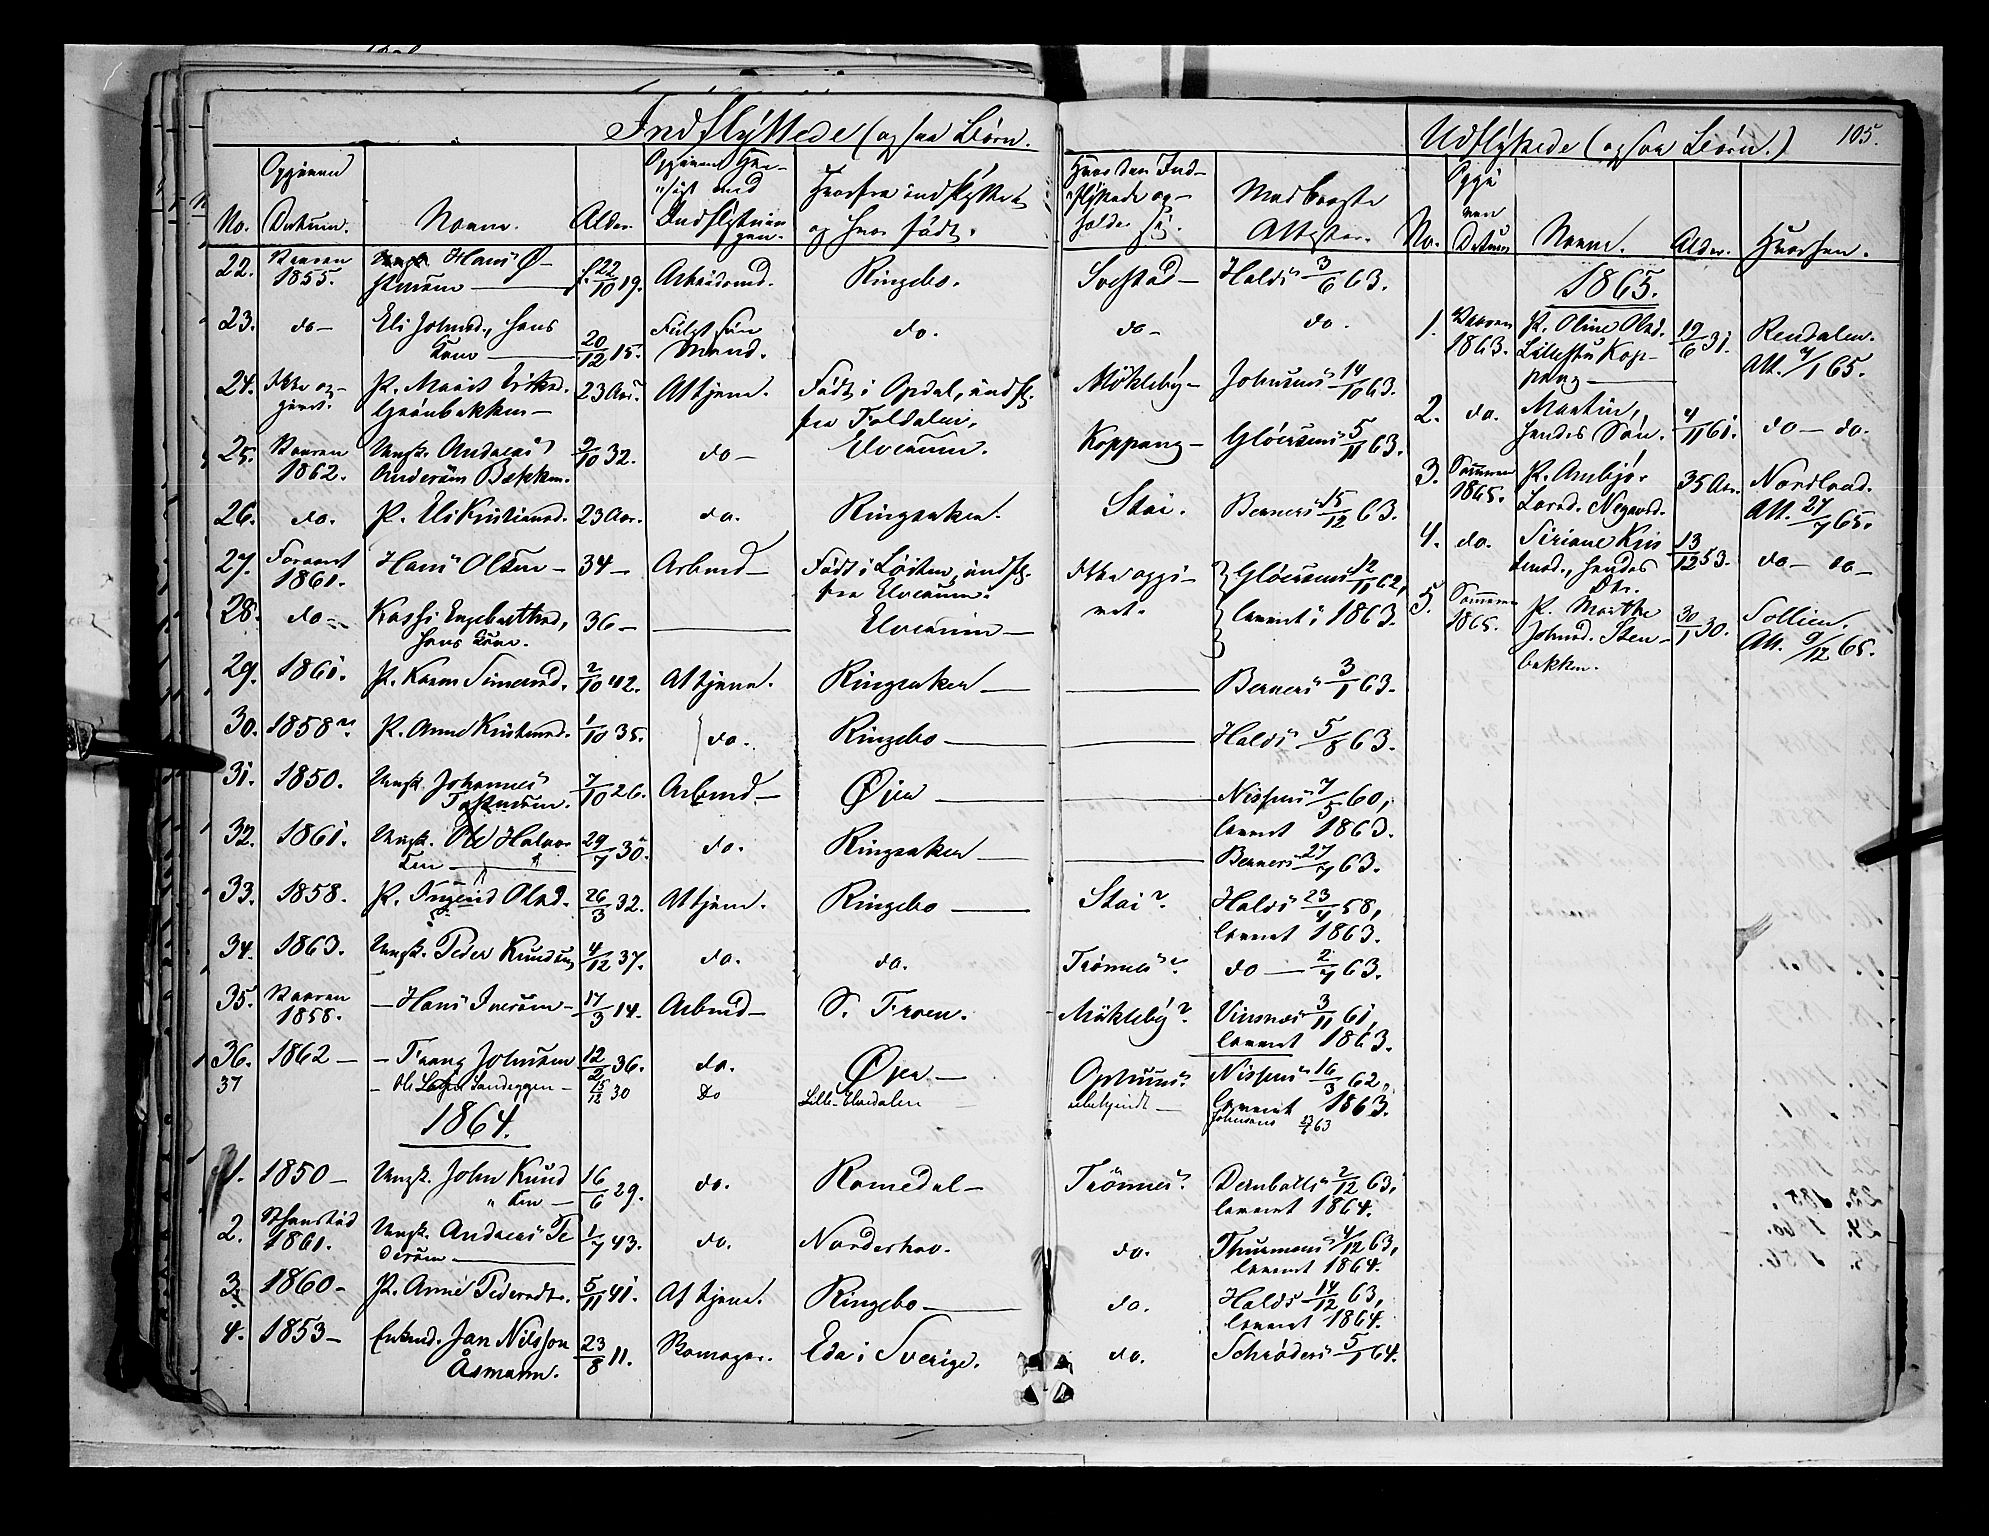 Indflyttede (ogsaa Børn.
Udflyttede (ogsaa Børn.) 105.
No. Opgiven Datum. Navn. Alder. Opgiven Hensigt med Indflytningen. Hvorfra indflyttet og hvor født. Hvor den Indflyttede opholder sig. Medbragte Attester.
22. Vaaren 1855. Ungk. Hans Østensen f. 22/10 19. Arbeidsmd. Ringebo. Evestad Halds 3/6 63.
23. do Eli Johnsd., hans Kone 20/12 15. Fulgt sin Mand. do. do do.
24. Ikke opgivet. P. Marit Eriksd. Grønbakken 23 Aar. At tjene. Født i Opdal, indfl. fra Foldalen. Møkleby Johnsens 14/10 63.
25. Vaaren 1862. Ungk. Andreas Andersen Bækken. 9/10 32. do Elverum. Koppang Gløersens 5/11 63.
26. do. P. Eli Kristiansd. 23 Aar. do. Ringsaker. Stai. Berners 15/12 63.
27. Foraaret 1861. Hans Olsen 34 Arbmd Født i Løiten, indfl. fra Elverum. Ikke opgivet. Gløersens 12/11 62, leveret i 1863.
28. do Kassi Engebretsd., hans Kone. 36 Elverum
29. 1861. P. Karen Simensd. 2/10 42. At tjene. Ringsaker Berners 3/1 63.
30. 1858? P. Anne Kristensd. 1/10 35. do. Ringebo Halds 5/8 63.
31. 1850. Ungk. Johannes 7/10 26. Arbmd Øier Nissens 7/5 60, leveret 1863.
32. 1861. Ungk. Ole Halvorsen 29/7 30. do. Ringsaker Berners 27/7 63.
33. 1858. P. Ingerid Olsd. 26/3 32. At tjene. Ringebo Stai? Halds 23/4 58, leveret 1863.
34. 1863. Ungk. Peder Knudsen 4/12 37. do. do. Trønnes? do 2/7 63.
35. Vaaren 1858. Hans Iversen 17/3 14. Arbmd S. Froen. Møkleby? Vinsnes 3/11 61, leveret 1863.
36. 1862 Frants Johnsen 12/2 36. do. Øier Ophuus? Nissens 16/3 62, leveret 1863.
37 Ole Sandeggen 15/12 30 Do Lille-Elvedalen ubekjendt Johnsens 23/6 63
1864.
1. 1850 Ungk. John Knudsen 16/6 29. do. Romedal Trønnes? 2/12 63, leveret 1864.
2. 1861. Ungk. Andreas Pedersen 1/7 43. do. Norderhov. do. Thurmans 4/12 63, leveret 1864.
3. 1860 P. Anne Pedersdt. 5/11 41. At tjene. Ringebo do. Halds 14/12 63, leveret 1864.
4. 1853 Enkmd. Jan Nilsson Åsmann. 23/8 11. Eda i Sverige. do. Schrøders 5/1 64.
No. Opgiven Datum Navn. Alder. Hvorhen.
1865.
1. Vaaren 1863. P. Oline Olsd. Lillestu Koppang 19/6 31. Rendalen. Att. 4/1 65.
2. do. Martin, hendes Søn. 4/11 61. do do.
3. Sommeren 1865. P. Ambjør Larsd. Negaard. 35 Aar. Nordland. Att. 27/7 65.
4. do. Siriane Kristensd., hendes Dtr. 13/12 53. do do
5. Sommeren 1865. P. Marthe Johnsd. Stenbakken. 30/1 30. Sollien. Att. 9/12 65.